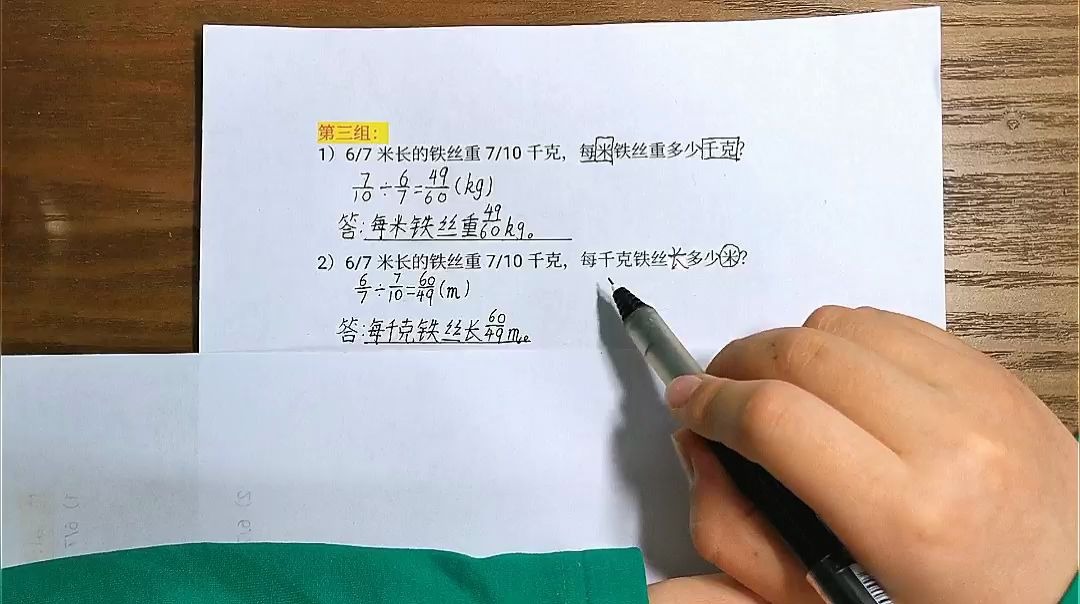 第三组:
1）6/7 米长的铁丝重 7/10 千克，每米铁丝重多少千克?
7/10÷6/7=49/60(kg)
答:每米铁丝重49/60kg。
2）6/7 米长的铁丝重 7/10 千克，每千克铁丝长多少米?
6/7÷7/10=60/49(m)
答:每千克铁丝长60/49m。